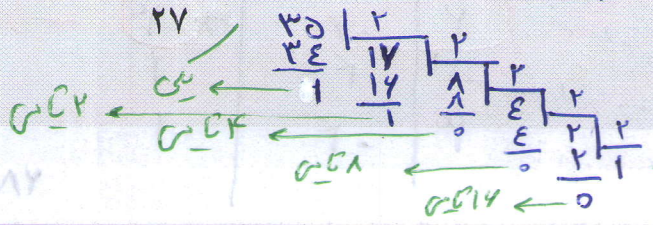 ۲۷
۳۵ ۲
۳۴ ۱۷ ۲
۱ ۱۶ ۸ ۲
۱ ۸ ۴ ۲
۰ ۴ ۲ ۲
۰ ۲ ۱
۰
یکی
۲ تایی
۴ تایی
۸ تایی
۱۶ تایی